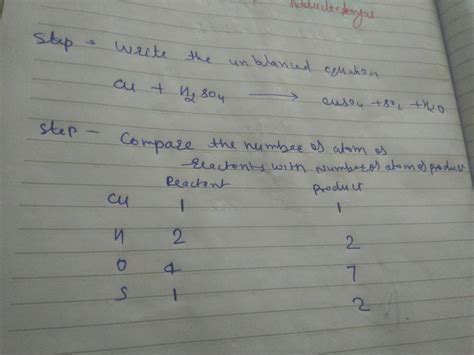 Step → Write the unblanced equation
Cu + H₂SO₄ → CuSO₄ + SO₂ + H₂O
Step - Compare the number of atom of
reactents with number of atom of product
Reactent product
Cu 1 1
H 2 2
O 4 7
S 1 2